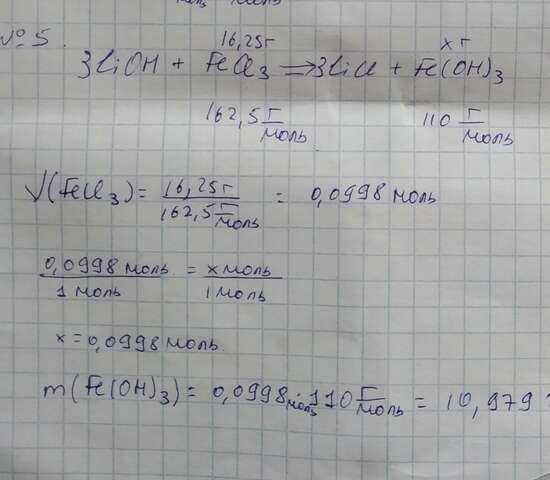 № 5.
16,25г x г
3LiOH + FeCl₃ ⇒ 3LiCl + Fe(OH)₃
162,5 г/моль 110 г/моль
√(FeCl₃) = 16,25г / 162,5 г/моль = 0,0998 моль
0,0998 моль / 1 моль = x моль / 1 моль
x = 0,0998 моль
m(Fe(OH)₃) = 0,0998 моль · 110 г/моль = 10,979